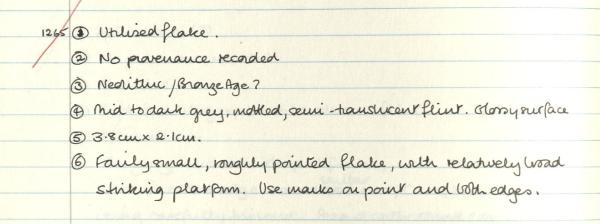 1265 ① Utilised flake.
② No provenance recorded
③ Neolithic / Bronze Age?
④ Mid to dark grey, mottled, semi-translucent flint. Glossy surface
⑤ 3.8cm x 2.1cm.
⑥ Fairly small, roughly pointed flake, with relatively broad
striking platform. Use marks on point and both edges.